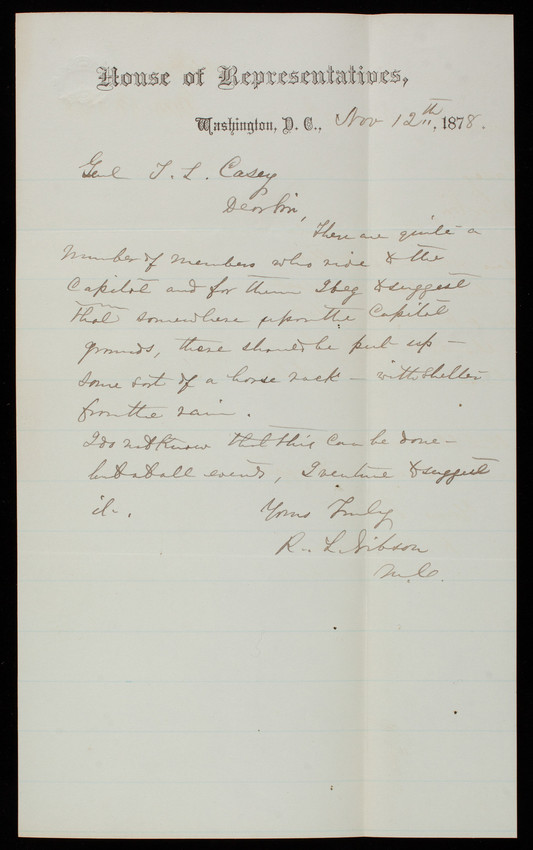 House of Representatives,
Washington, D. C., Nov 12th, 1878.
Genl T. L. Casey
Dear Sir,
There are quite a
number of members who ride to the
Capitol and for them I beg to suggest
that somewhere upon the Capitol
grounds, there should be put up -
some sort of a horse rack - with shelter
from the rain.
I do not know that this can be done -
but at all events, I venture to suggest
it.
Yours Truly
R. L. Gibson
M.C.